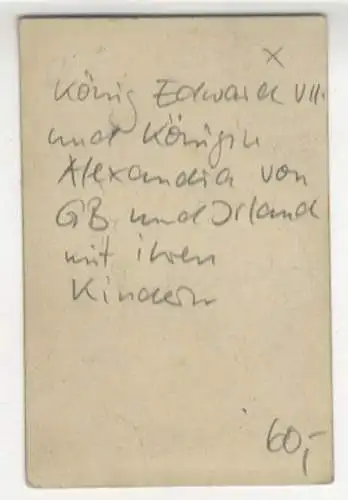 x
König Edward VII.
und Königin
Alexandra von
GB und Irland
mit ihren
Kindern
60,-